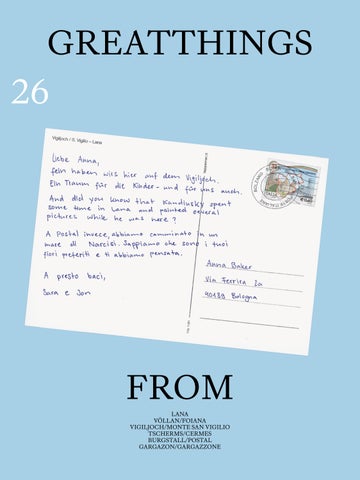 GREATTHINGS
26
Vigiljoch / S. Vigilio – Lana
Liebe Anna,
fein haben wir's hier auf dem Vigiljoch.
Ein Traum für die Kinder - und für uns auch.
And did you know that Kandinsky spent
some time in Lana and painted several
pictures while he was here?
A Postal invece, abbiamo camminato in un
mare di Narcisi. Sappiamo che sono i tuoi
fiori preferiti e ti abbiamo pensata.
A presto baci,
Sara e Jon
BOLZANO
ITALIA
Anna Baker
Via Ferrira 2a
40139 Bologna
FROM
LANA
VÖLLAN/FOIANA
VIGILJOCH/MONTE SAN VIGILIO
TSCHERMS/CERMES
BURGSTALL/POSTAL
GARGAZON/GARGAZZONE